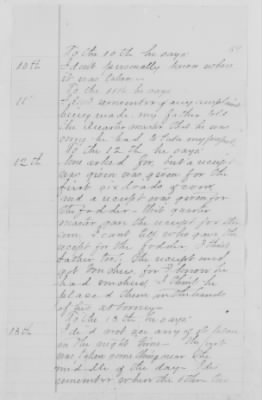 To the 10th he says
10th I don't personally know when
it was taken—
To the 11th he says
11 I don't remember of any complaint
being made, my father told
the Quarter master that he was
sorry he had to take my
To the 12th he says
12th We asked for, but a receipt
was given for the
first six loads of corn
and a receipt was given for
the fodder— that quarter
master gave the receipt for the
corn, I cant tell who gave the
receipt for the fodder, I think
father too, the receipt and
got vouchers, for I know he
had vouchers I think he
placed them in the hands
of his attorney—
To the 13th he says
13th I did not see any of it taken
in the night time— The first
was taken something near the
middle of the day I dis
remember when the other two